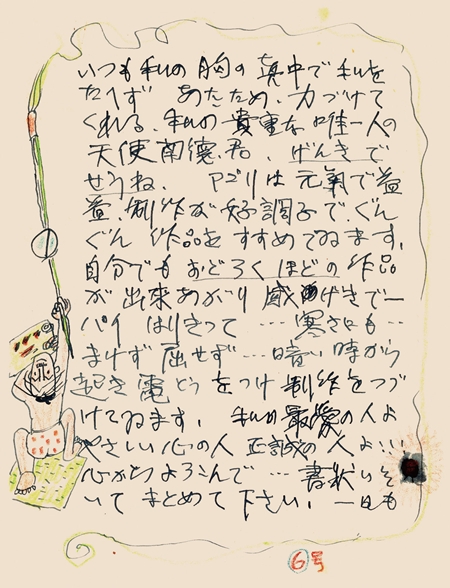 いつも私の胸の真中で私を
たへず あたため、力づけて
くれる、私の貴重な唯一人の
天使南德君、げんきで
せうね、 アゴリは元氣で益
益、制作が好調子で、ぐん
ぐん 作品をすすめてゐます。
自分でもおどろくほどの作品
が出来あがり 感げきで一
パイ はりきって … 寒さにも…
まけず 屈せず…暗い時から
起き電とうをつけ 制作をつづ
けてゐます。 私の最愛の人よ
やさしい心の人 正誠の人よ…
心からよろこんで … 書状いそ
いで まとめて 下さい。一日も
6号